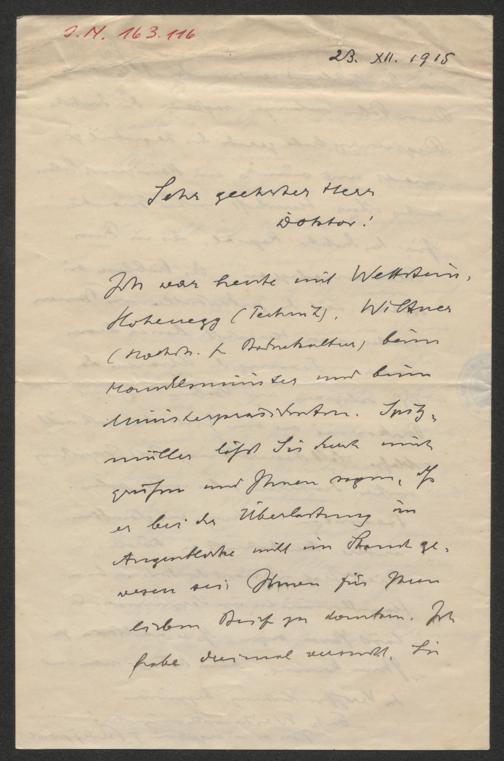 I.N. 163.116
23. XII. 1915
Sehr geehrter Herr
Doktor!
Ich war heute mit Wettstein,
Hohenegg (Technik), Wilhner
(Hochsch. f. Bodenkultur) beim
Handelsminister und beim
Ministerpräsidenten. Spitz-
müller läßt Sie durch mich
grüßen und Ihnen sagen, daß
er bei der Überlastung im
Augenblicke nicht im Stand ge-
wesen sei, Ihnen für Ihren
lieben Brief zu danken. Ich
habe dreimal versucht, Sie